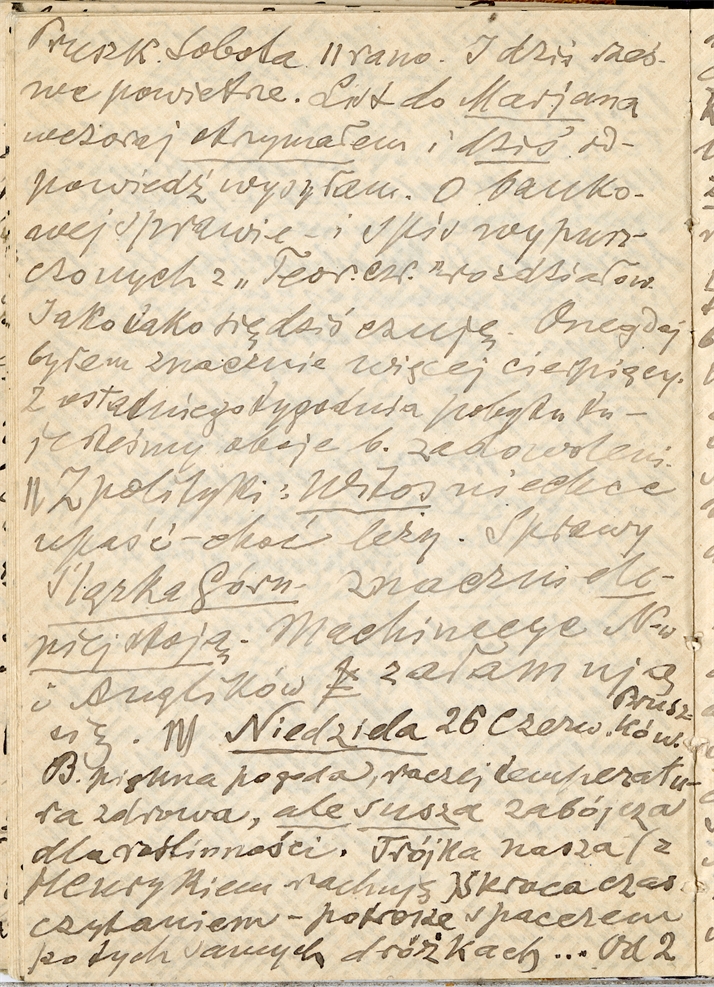 Pruszk. Sobota 11 rano. I dziś rzeź-
we powietrze. List do Marjana
wczoraj otrzymałem i dziś od-
powiedź wysyłam. O banko-
wej sprawie - i spis wypusz-
czonych z „Teor. czw." rozdziałów.
Jako tako się dziś czuję. Onegdaj
byłem znacznie więcej cierpiący.
Z ostatniego tygodnia pobytu tu -
jesteśmy oboje b. zadowoleni.
|| Z polityki: Witos nie chce
upaść - choć leży. Sprawy
Śląska Górn. znacznie le-
piej stoją. Machinacye
i Anglików załamują
się. Niedziela 26 Czerw. Prusz-
ków.
B. piękna pogoda, raczej temperatu-
ra zdrowa, ale susza zabójcza
dla roślinności. Trójka nasza (z
Henrykiem rachują) skraca czas
czytaniem - potrosze spacerem
po tych samych dróżkach ... Od 2